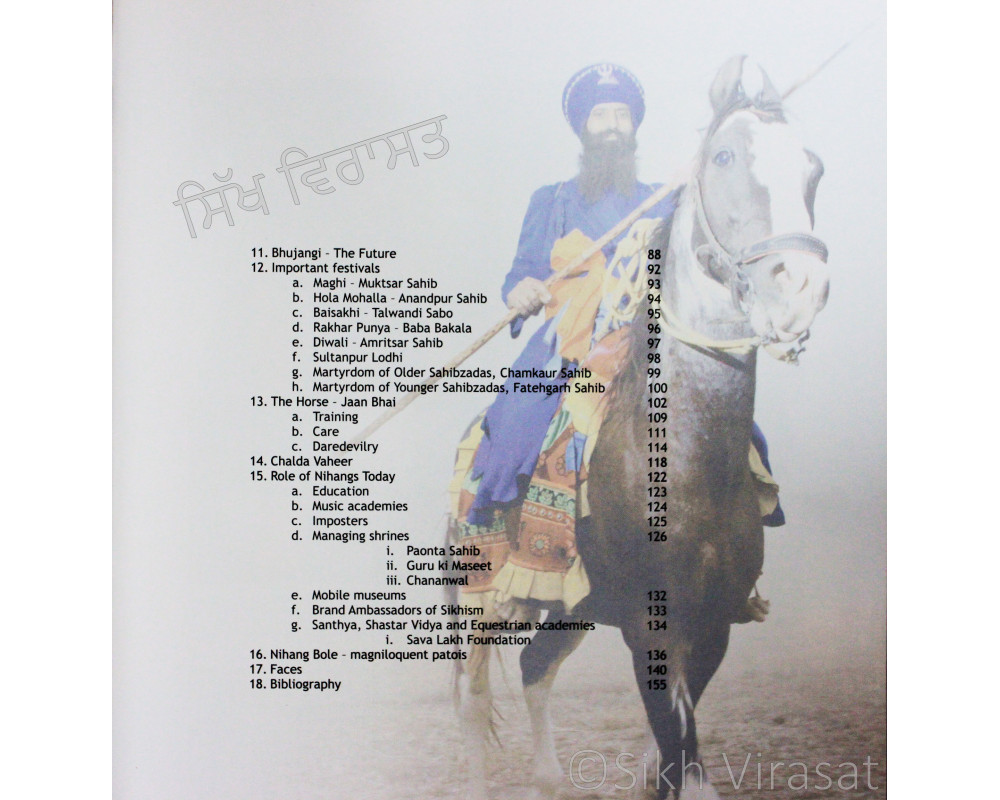 ਸਿੱਖ ਵਿਰਾਸਤ
11. Bhujangi – The Future 88
12. Important festivals 92
a. Maghi – Muktsar Sahib 93
b. Hola Mohalla – Anandpur Sahib 94
c. Baisakhi – Talwandi Sabo 95
d. Rakhar Punya – Baba Bakala 96
e. Diwali – Amritsar Sahib 97
f. Sultanpur Lodhi 98
g. Martyrdom of Older Sahibzadas, Chamkaur Sahib 99
h. Martyrdom of Younger Sahibzadas, Fatehgarh Sahib 100
13. The Horse – Jaan Bhai 102
a. Training 109
b. Care 111
c. Daredevilry 114
14. Chalda Vaheer 118
15. Role of Nihangs Today 122
a. Education 123
b. Music academies 124
c. Imposters 125
d. Managing shrines 126
i. Paonta Sahib
ii. Guru ki Maseet
iii. Chananwal
e. Mobile museums 132
f. Brand Ambassadors of Sikhism 133
g. Santhya, Shastar Vidya and Equestrian academies 134
i. Sava Lakh Foundation
16. Nihang Bole – magniloquent patois 136
17. Faces 140
18. Bibliography 155
©Sikh Virasat